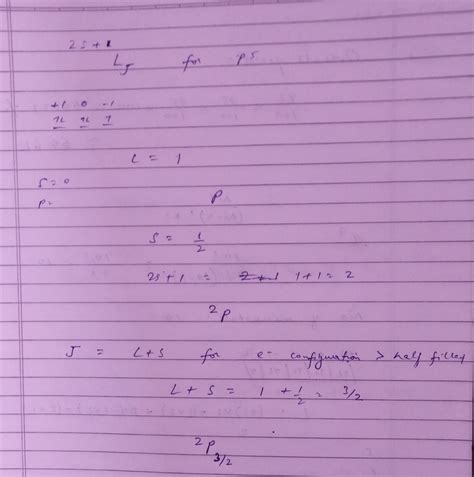 2s+1
L_J for p5
+1 0 -1
1L 1L 1
L = 1
S=0
P=
P
S = 1/2
2s+1 = 2+1 1+1=2
²P
J = L+S for e- configuration > half filled
L+S = 1 + 1/2 = 3/2
²P_3/2